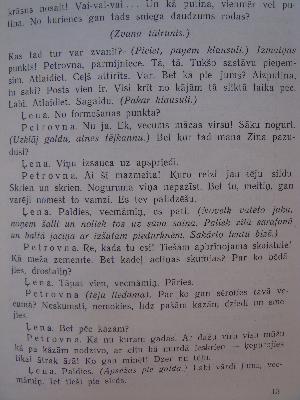 krāsns nosalt! Vai-vai-vai ... Un kā putina, vienmēr vēl pu-
tina. No kurienes gan tāds sniega daudzums rodas?
(Zvana tālrunis.)
Kas tad tur var zvanīt? (Pieiet, paņem klausuli.) Izmaiņas
punkts! Petrovna, pārmijniece. Tā, tā. Tukšo sastāvu pieņem-
sim. Atlaidiet. Ceļš attīrīts. Var. Bet kā pie jums? Aizputina,
jūs saki? Posts vien ir. Visi krīt no kājām tā sliktā laika pēc.
Labi. Atlaidiet. Sagaidu. (Pakar klausuli.)
Ļena. No formēšanas punkta?
Petrovna. Nu jā. Ek, vecums mācas virsū! Sāku nogurt.
(Uzklāj galdu, atnes tējkannu.) Bet kur tad mana Zina pazu-
dusi?
Ļena. Viņu izsauca uz apspriedi.
Petrovna. Ai šī mazmeita! Kuro reizi jau tēju sildu.
Skrien un skrien. Noguruma viņa nepazīst. Bet tu, meitiņ, gan
varēji nomest to vamzi. Es tev palīdzēšu.
Ļena. Paldies, vecmāmiņ, es pati. (Novelk vatēto jaku,
noņem šalli un noliek tos uz sāna soliņa. Paliek zilā sarafānā
un baltā jaciņā ar izšūtām piedurknēm. Sakārto lentu bizē.)
Petrovna. Re, kāda tu esi! Tiešām apbrīnojama skaistule!
Kā meža zemenīte. Bet kādēļ actiņas skumjas? Par ko bēdā-
jies, drostaliņ?
Ļena. Tāpat vien, vecmāmiņ. Pāries.
Petrovna (tēju liedama). Par ko gan sēroties tavā ve-
cumā? Neskumsti, nemokies, līdz pašām kāzām, dziedi un smē-
jies.
Ļena. Bet pēc kāzām?
Petrovna. Kā nu kuram gadās. Ar dažu viņu mūžu
kā pa kāzām nodzīvo, ar citu kā murdā ieskrien —
tikai ātrāk ārā! Ko gan minēt! Dzer nu tēju.
Ļena. Paldies. (Apsēžas pie galda.) Labi vārdi jums, vec-
māmiņ. Iet tieši pie sirds.
13